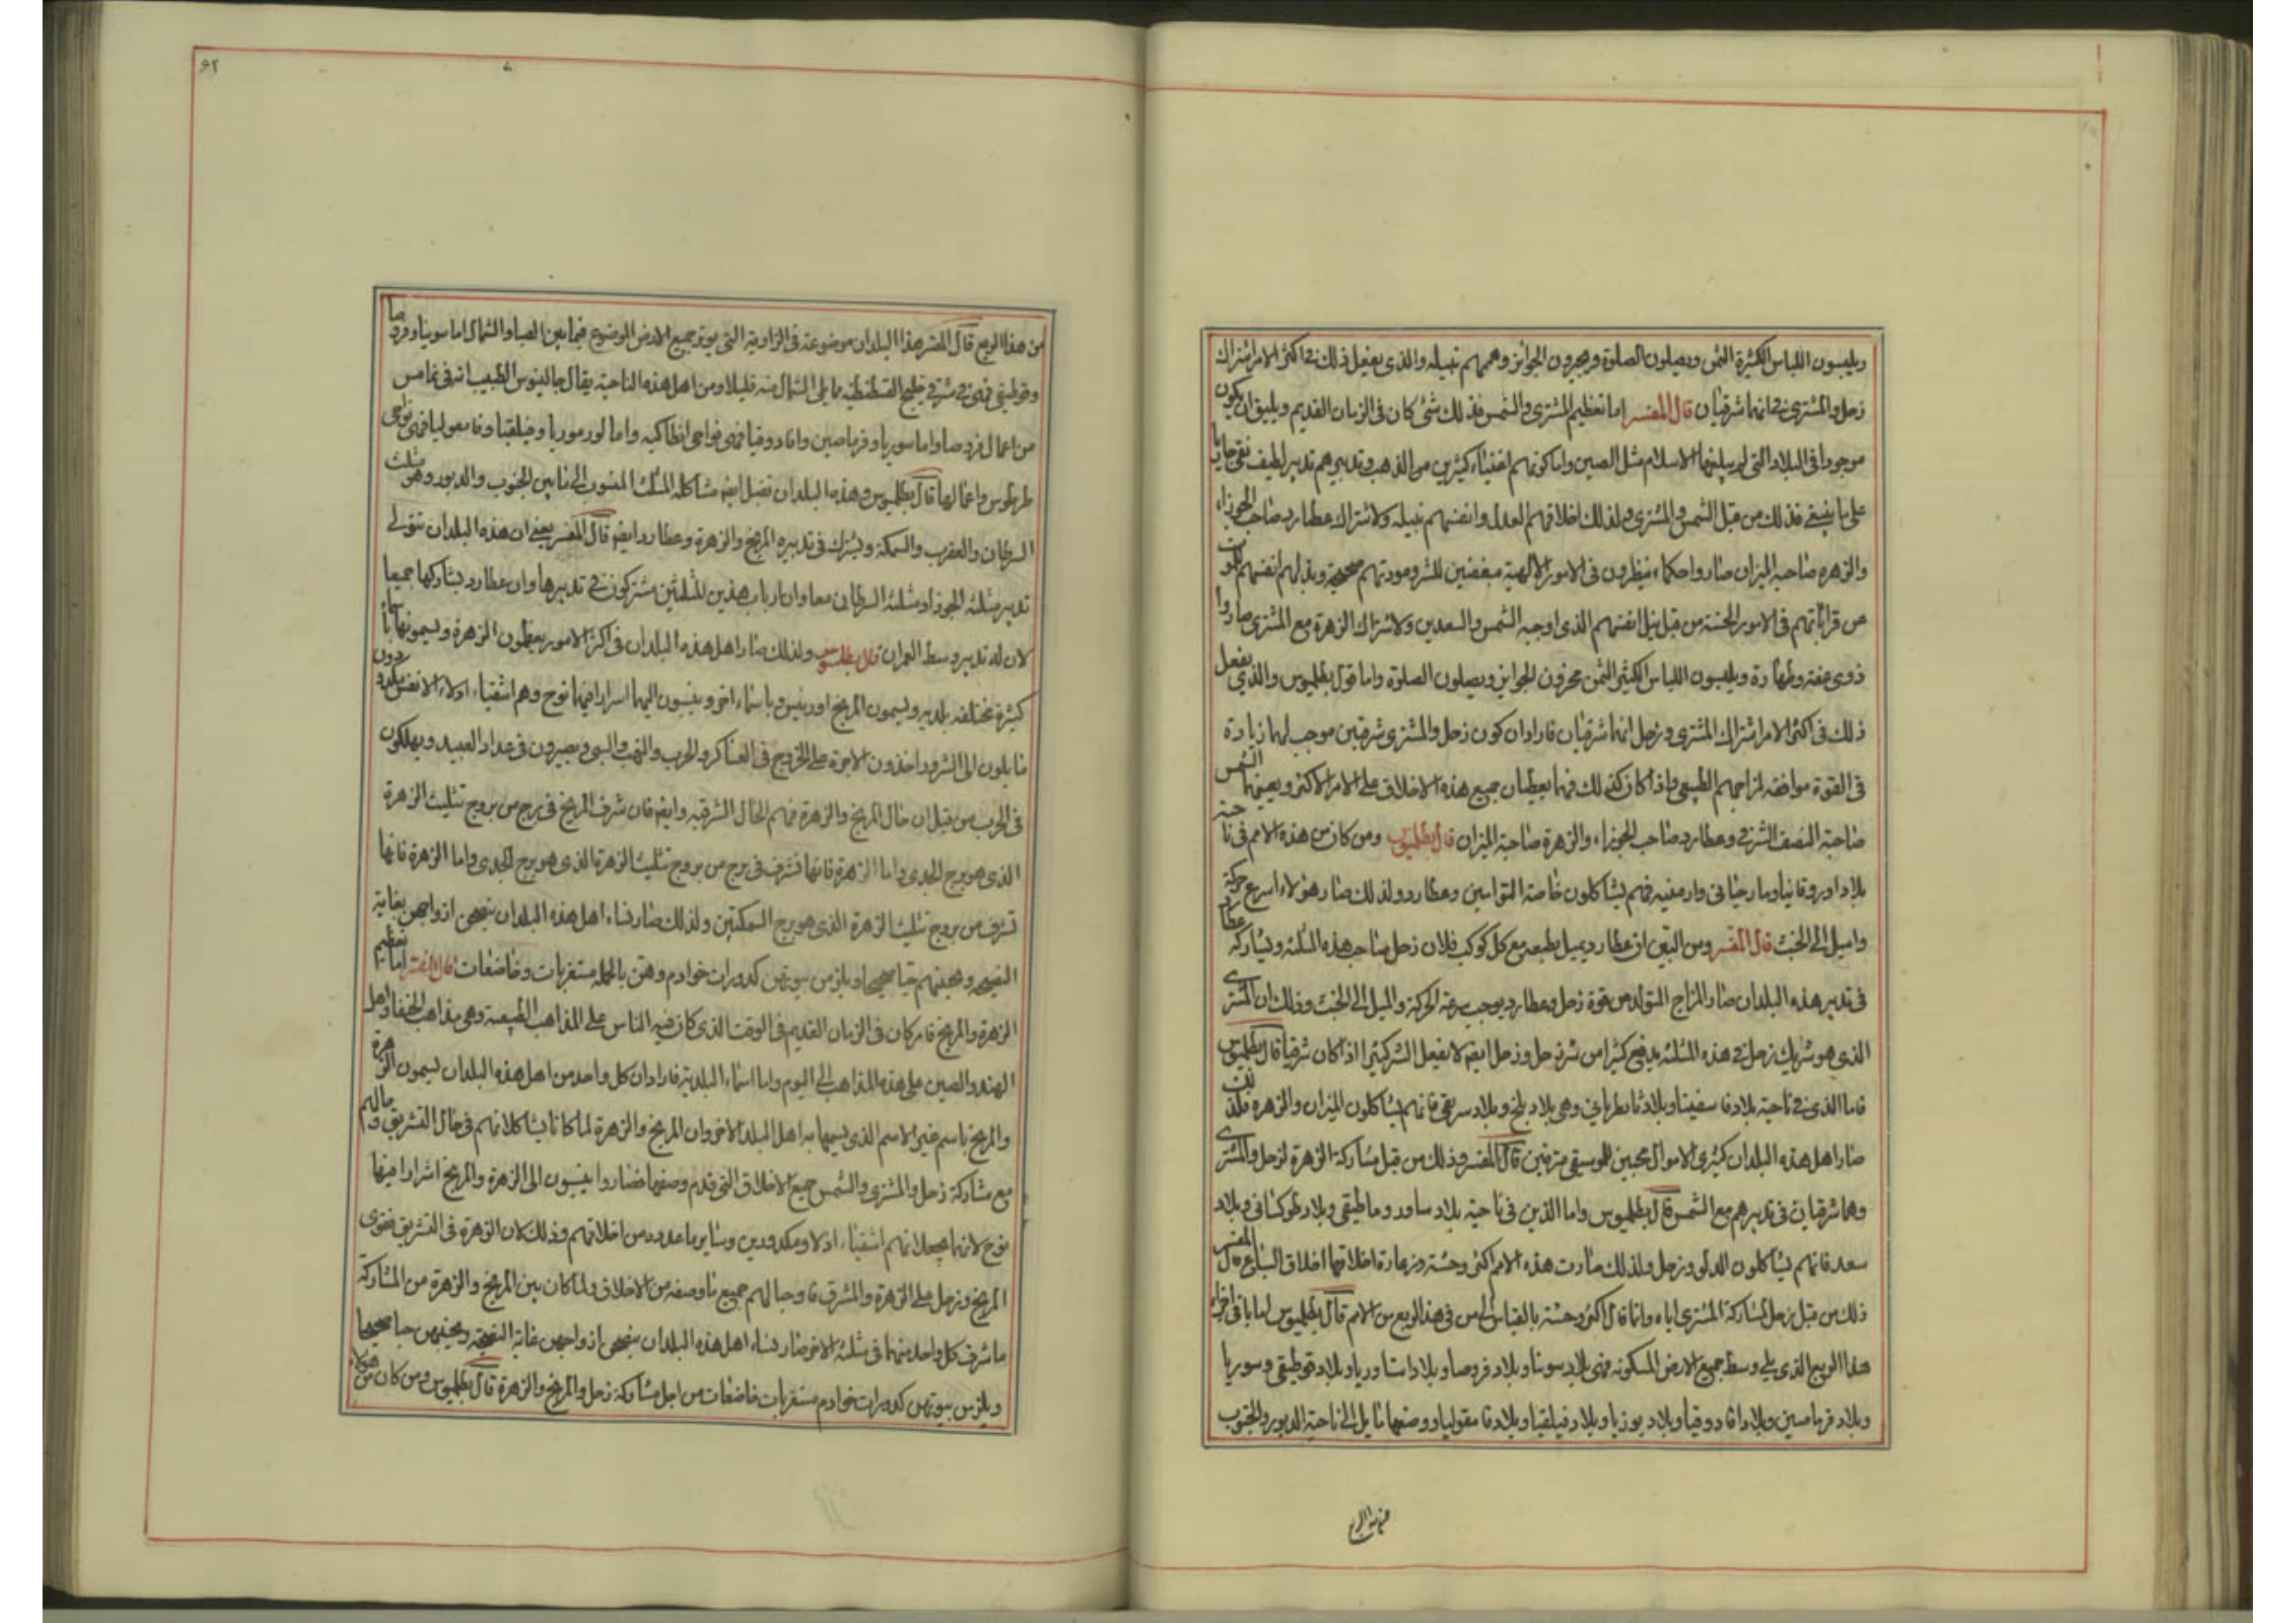 ويلبسون اللباس الكثيرة الثمن ويصلون الصلوة ويجرون الجوائز وهممهم نبيله والذى يفعل ذلك فى اكثر الامر اشتراك
زحل والمشترى فى انهما شرقيان قال المفسر اما تعظيم المشترى والشمس فذلك شئ كان فى الزمان القديم ويليق ان يكون
موجودا فى البلاد التى لم يبلغها الاسلام مثل الصين واما كونهم اغنياء كثيرين من الذهب وتدبيرهم تدبير لطيف
على ما ينبغى فذلك من قبل الشمس والمشترى ولذلك اخلاقهم العدل وانفسهم نبيله ولاشتراك عطارد صاحب الجوزاء
والزهره صاحبه الميزان صاروا حكماء ينظرون فى الامور الالهية مبغضين للشر ومودتهم صحيحة وبذلهم نفسهم للموت
عن قراباتهم فى الامور الحسنة من قبل نبل انفسهم الذى اوجبه الشمس والسعدين ولاشتراك الزهرة مع المشترى صاروا
ذوى عفة وطهارة ويلبسون اللباس الكثير الثمن يجرون الجوايز ويصلون الصلوة واما قول بطلميوس والذى يفعل
ذلك فى اكثر الامر اشتراك المشترى وزحل انهما شرقيان فاراد ان كون زحل والمشترى شرقيين موجب لهما زيادة
فى القوة موافقه لمزاجهم الطبيعى واذا كان كذلك فهما يعطيان جميع هذه الاخلاق على الامر الاكثر ويعينهما الشمس
صاحبة النصف الشرقى وعطارد صاحب الجوزاء والزهرة صاحبة الميزان قال بطلميوس ومن كان من هذه الامم فى ناحية
بلاد اوروقانيا وارمنيه فهم يشاكلون خاصة التوامين وعطارد ولذلك صار هؤلاء اسرع حركة
واميل الى الخبث قال المفسر ومن البين ان عطارد يميل بطبعه مع كل كوكب فلان زحل صاحب هذه المثلثه ويشاركه عطارد
فى تدبير هذه البلدان صار المزاج المتولد من قوة زحل وعطارد يوجب سرعة الحركة والميل الى الخبث وذلك ان المشترى
الذى هو شريك زحل فى هذه المثلثه يدفع كثيرا من شر زحل وزحل ايضا لا يفعل الشر كثيرا اذا كان شرقيا قال بطلميوس
فاما الذى فى ناحية بلاد وهى بلاد بلخ وبلاد فانهم يشاكلون الميزان والزهره فلذلك
صار اهل هذه البلدان كثيرى الاموال محبين للموسيقى مترفين قال المفسر وذلك من قبل مشاركة الزهرة لزحل والمشترى
وهما شرقيان فى تدبيرهم مع الشمس قال بطلميوس واما الذين فى ناحية بلاد وبلاد
سعد فانهم يشاكلون الدلو وزحل ولذلك صارت هذه الامم اكثر وحشة وزعارة اخلاقها اخلاق السباع قال المفسر
ذلك من قبل زحل لمشاركة المشترى اياه وانما قال اكثر وحشة بالقياس الى من فى هذا الربع من الامم قال بطلميوس اما باقى اجزاء
هذا الربع الذى يلى وسط جميع الارض المسكونه فهى بلاد سونيا وبلاد فروصا وبلاد وسوريا
وبلاد فرماصين وبلاد وبلاد وبلاد فيلقيا وبلاد ووضعها مايل الى ناحية الدبور والجنوب
من هذا الربع
٦٢
من هذا الربع قال المفسر هذا البلدان موضوعة فى الزاوية التى يوتر جميع الارض الموضوع فيما بين الصبا والشمال اما سوبيا وفروصا
فهى فى شرقى خليج القسطنطنيه مايلى الشمال منه قليلا ومن اهل هذه الناحية يقال جالينوس الطبيب انه
من اعمال فروصا واما سوريا وفرماصين فهى نواحى انطاكيه واما وفيلقيا فهى نواحى
طرطوس واعمالها قال بطلميوس وهذه البلدان تقبل ايضا مشاكله المثلث المنسوب الى ما بين الجنوب والدبور وهو مثلث
السرطان والعقرب والسمكة ويشترك فى تدبيره المريخ والزهرة وعطارد ايضا قال المفسر يعنى ان هذه البلدان تتولى
تدبير مثلثه الجوزا ومثلثه السرطان معا وان ارباب هذين المثلثين مشتركون فى تدبيرها وان عطارد يشاركها جميعا
لان له تدبير وسط العمران قال بطلميوس ولذلك صار اهل هذه البلدان فى اكثر الامور يعظمون الزهرة ويسمونها باسماء
كثيرة مختلفه بلديه ويسمون المريخ وباسماء اخر وينسبون اليهما اسرارا فيها نوح وهم اشقياء اذلاء الانفس مكدودون
مايلون الى الشر وياخذون الاجرة على الخروج فى العساكر والحرب والنهب والسبى ويصيرون فى عداد العبيد ويهلكون
فى الحرب من قبل ان حال المريخ والزهرة فيهم الحال الشرقيه وايضا فان شرف المريخ فى برج من بروج تثليث الزهرة
الذى هو برج الجدى واما الزهرة فانها فشرف فى برج من بروج تثليث الزهرة الذى هو برج الجدى واما الزهرة فانها
تشرف من بروج تثليث الزهرة الذى هو برج السمكتين ولذلك صار نساء اهل هذه البلدان ينصحن ازواجهن بغاية
النصيحه ومحبتهم حبا صحيحا ويلزمن بيوتهن كدورات خوادم وهن بالجمله متغربات وخاضعات قال المفسر اما تعظيم
الزهرة والمريخ فامر كان فى الزمان القديم فى الوقت الذى كان فيه الناس على المذاهب الطبيعية وهى مذاهب الحنفا واهل
الهند والصين على هذه المذاهب الى اليوم واما اسماء البلدية فاراد ان كل واحد من اهل هذه البلدان يسمون الزهرة
والمريخ باسم غير الاسم الذى يسميها به اهل البلد الاخر وان المريخ والزهرة لما كانا يشاكلانهم فى حال التشريق
مع مشاركة زحل والمشترى والشمس جميع الاخلاق التى قدم وصفها فصاروا ينسبون الى الزهرة والمريخ اسرارا فيها
نوح لانهما يجعلانهم اشقياء اذلاء ومكدودين وساير ما عدده من اخلاقهم وذلك لان الزهرة فى التشريق تقوى
المريخ وزحل على الزهرة والمشرق فاوجبا لهم جميع ما وصفه من الاخلاق ولما كان بين المريخ والزهرة من المشاركة
ما شرف كل واحد منهما فى مثلثه الاخر صار نساء اهل هذه البلدان ينصحن ازواجهن غاية النصيحة ومحبتهن حبا صحيحا
ويلزمن بيوتهن كدورات خوادم متغربات خاضعات من اجل مشاركة زحل والمريخ والزهرة قال بطلميوس ومن كان من هؤلاء